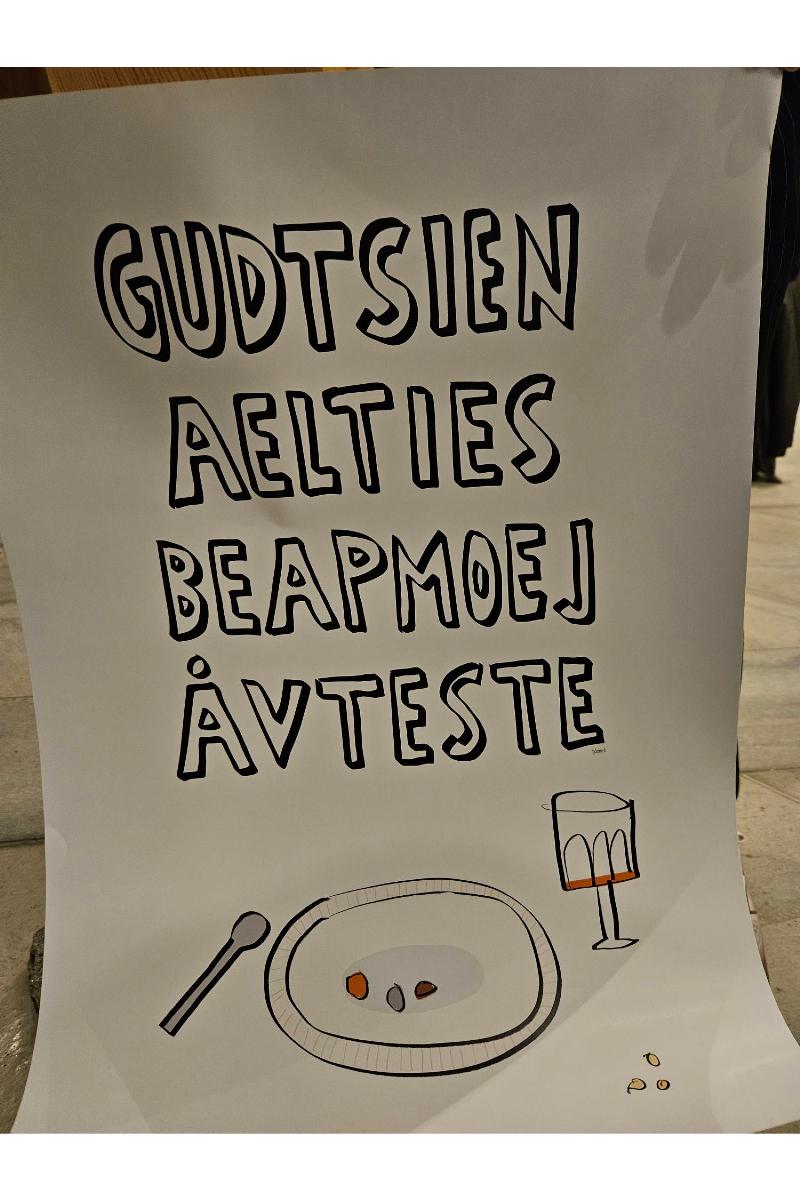 GUDTSIEN
AELTIES
BEAPMOEJ
ÅVTESTE